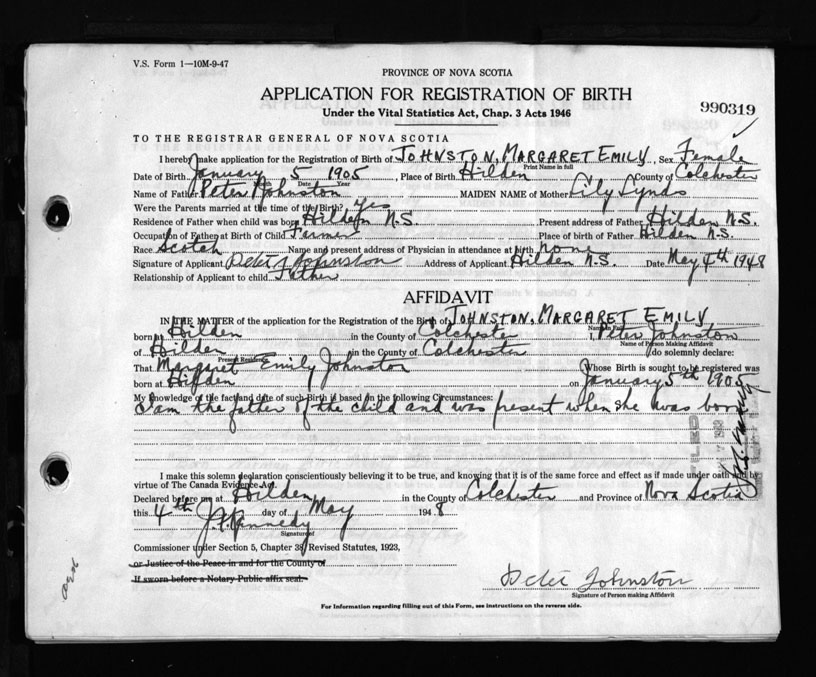 V.S. Form 1—10M-9-47
PROVINCE OF NOVA SCOTIA
APPLICATION FOR REGISTRATION OF BIRTH
990319
Under the Vital Statistics Act, Chap. 3 Acts 1946
TO THE REGISTRAR GENERAL OF NOVA SCOTIA
I hereby make application for the Registration of Birth of JOHNSTON, MARGARET EMILY, Sex Female
Print Name in full
Date of Birth January 5 1905, Place of Birth Hilden County of Colchester
Date Year
Name of Father Peter Johnston MAIDEN NAME of Mother Lily Lynds
Were the Parents married at the time of the Birth? Yes
Residence of Father when child was born Hilden N.S. Present address of Father Hilden N.S.
Occupation of Father at Birth of Child Farmer Place of birth of Father Hilden N.S.
Race Scotch Name and present address of Physician in attendance at birth none
Signature of Applicant Peter Johnston Address of Applicant Hilden N.S. Date May 4th 1948
Relationship of Applicant to child Father
AFFIDAVIT
IN THE MATTER of the application for the Registration of the Birth of JOHNSTON, MARGARET EMILY
born at Hilden in the County of Colchester I, Peter Johnston
Name of Person Making Affidavit
of Hilden in the County of Colchester do solemnly declare:
Present Residence
That Margaret Emily Johnston Whose Birth is sought to be registered was
born at Hilden on January 5th 1905
My knowledge of the fact and date of such Birth is based on the following Circumstances:
I am the father of the child and was present when she was born
FILED
I make this solemn declaration conscientiously believing it to be true, and knowing that it is of the same force and effect as if made under oath and by
virtue of The Canada Evidence Act.
Declared before me at Hilden in the County of Colchester and Province of Nova Scotia
this 4th day of May 1948
J. F. Kennedy
Signature of
Commissioner under Section 5, Chapter 38, Revised Statutes, 1923,
or Justice of the Peace in and for the County of
If sworn before a Notary Public affix seal.
Peter Johnston
Signature of Person making Affidavit
For Information regarding filling out of this Form, see instructions on the reverse side.